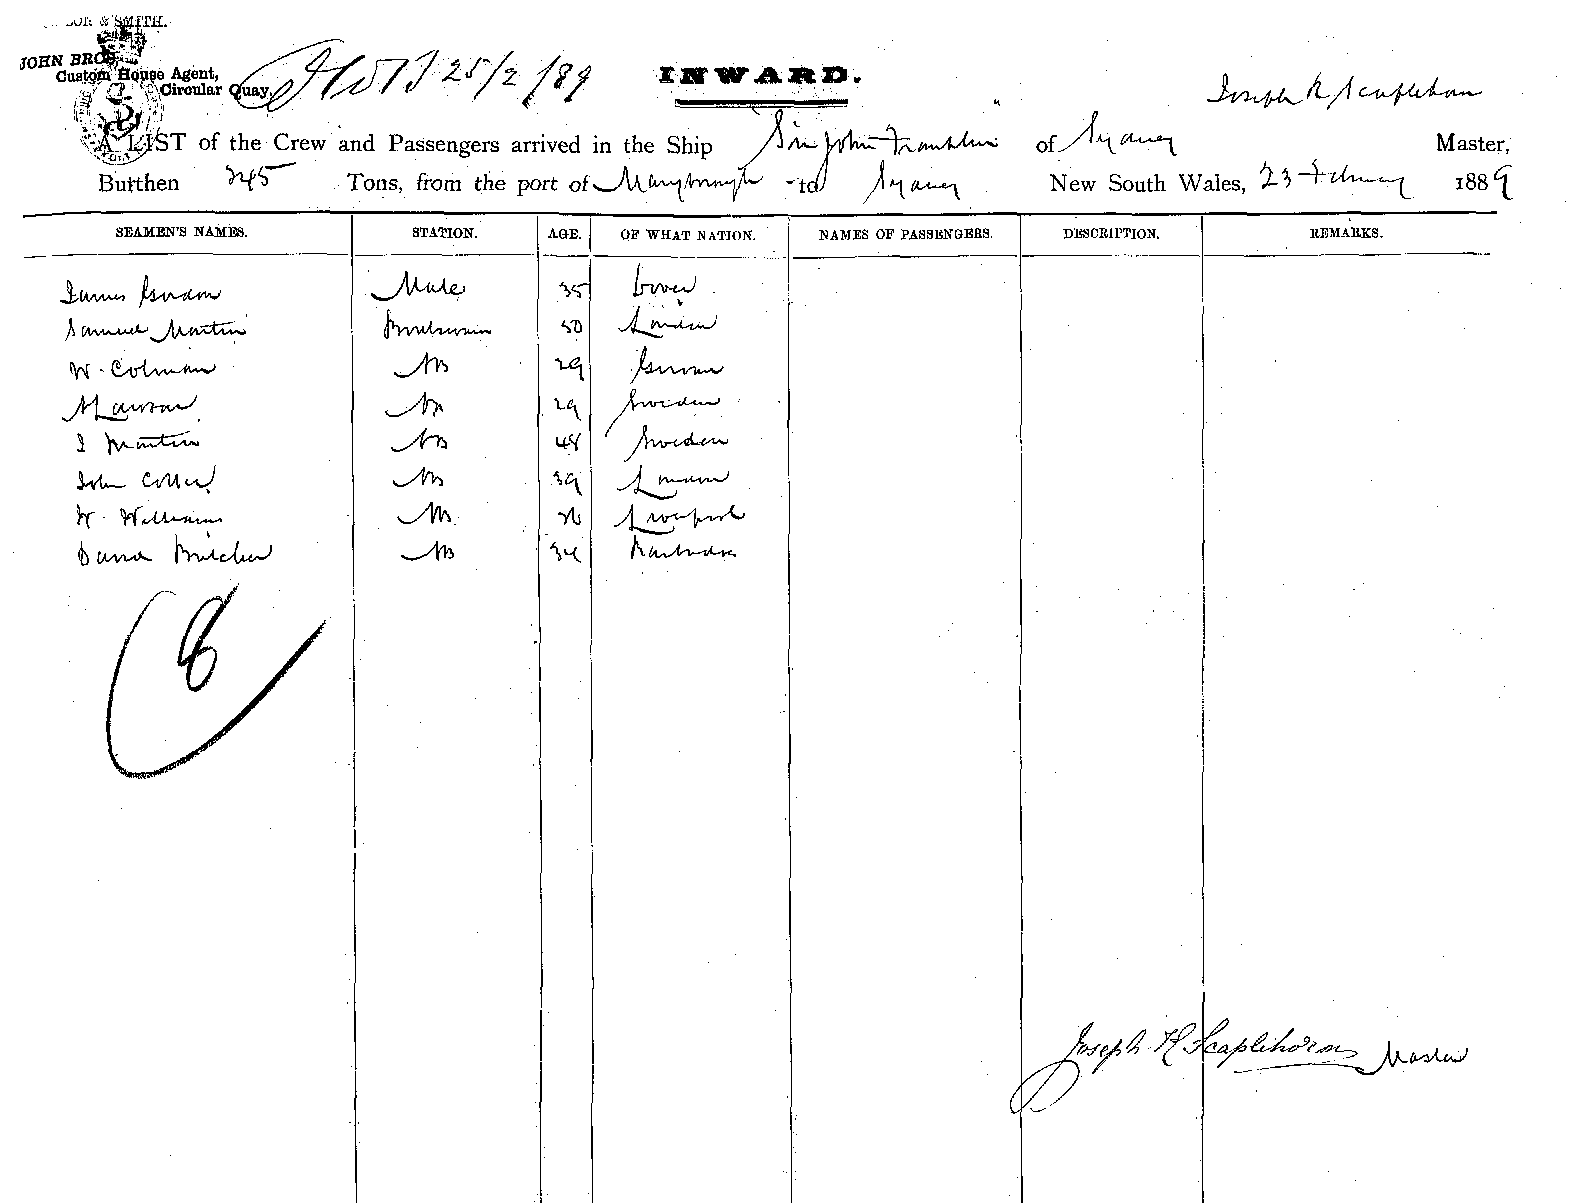 & SMITH.
JOHN BROS
Custom House Agent,
Circular Quay.
25/2/89
INWARD.
Joseph K Scaplehorn
A LIST of the Crew and Passengers arrived in the Ship Sir John Franklin of Sydney Master,
Burthen 345 Tons, from the port of Maryborough to Sydney New South Wales, 23 February 1889
SEAMEN'S NAMES. STATION. AGE. OF WHAT NATION. NAMES OF PASSENGERS. DESCRIPTION. REMARKS.
James Gordon Mate 35 Dover
Samuel Martin Boatswain 50 London
W. Colman AB 29 German
Lawson AB 29 Sweden
J Martin AB 48 Sweden
John Collier AB 39 London
W. Williams AB Liverpool
David Butcher AB 34 Barbados
8
Joseph K Scaplehorn Master